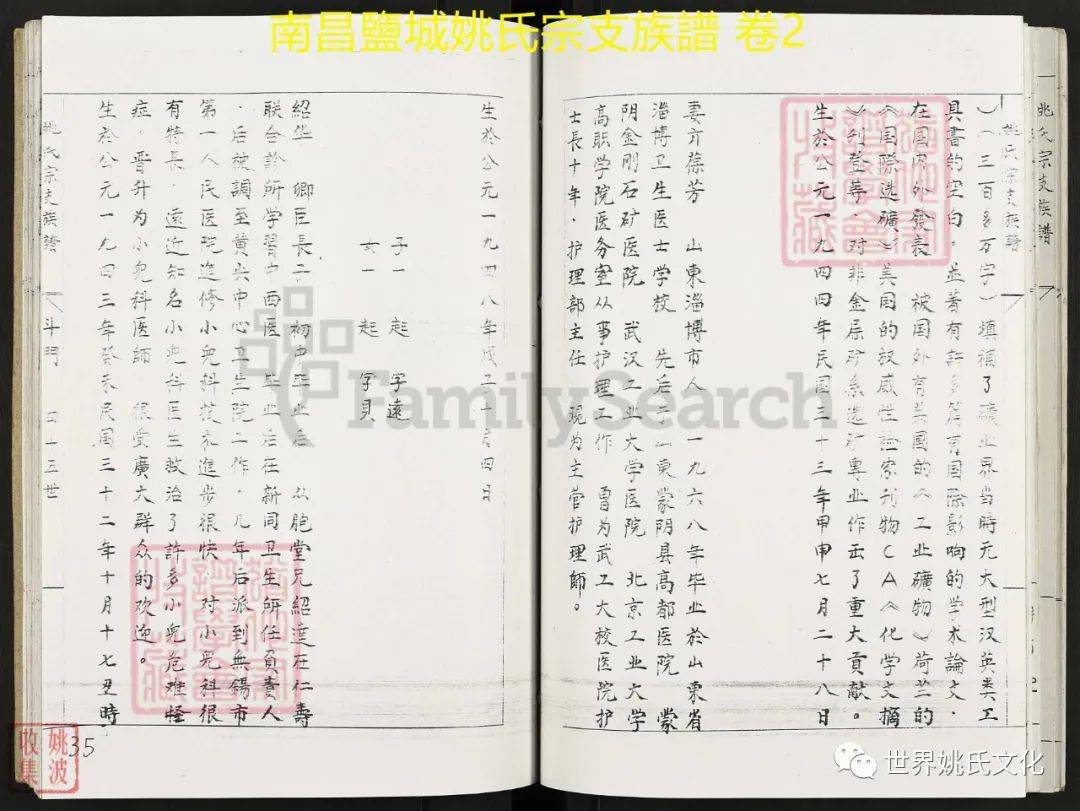 南昌鹽城姚氏宗支族譜 卷2
姚氏宗支族譜
姚氏宗支族譜
）（三百多万字）填補了礦业界当時无大型汉英类工
具書的空白。並著有許多篇有国际影响的学术論文.
在国内外發表 被国外有美國的《工业礦物》荷兰的
《国際选礦》美国的权威性检索刊物CA《化学文摘
》刊登等 对非金层矿系选矿專业作出了重大贡献。
生於公元一九四四年民國三十三年甲申七月二十八日
妻亓葆芳 山東淄博市人 一九六八年毕业於山東省
淄博卫生医士学校 先后于山東蒙阴县高都医院 蒙
阴金刚石矿医院 武汉工业大学医院 北京工业大学
高职学院医务室从事护理工作 曾为武工大校医院护
士長十年.护理部主任 現为主管护理師。
生於公元一九四八年戊子十月四日
子一 起 字遠
女一 起 字貝
紹华 卿臣長子 初中毕业后 从胞堂兄紹達在仁壽
联合診所学習中西医 毕业后在新同卫生所任負責人
.后被調至黄央中心卫生院工作.几年后派到無錫市
第一人民医院進修小兒科技术進步很快 对小兒科很
有特長.遠近知名小兒科医生救治了許多小兒危难怪
症.晋升为小兒科医師 很受廣大群众的欢迎。
生於公元一九四三年癸未民國三十二年十月十七丑時
姚氏宗支族譜 斗門 四十五世
35
姚波
收集
FamilySearch
世界姚氏文化